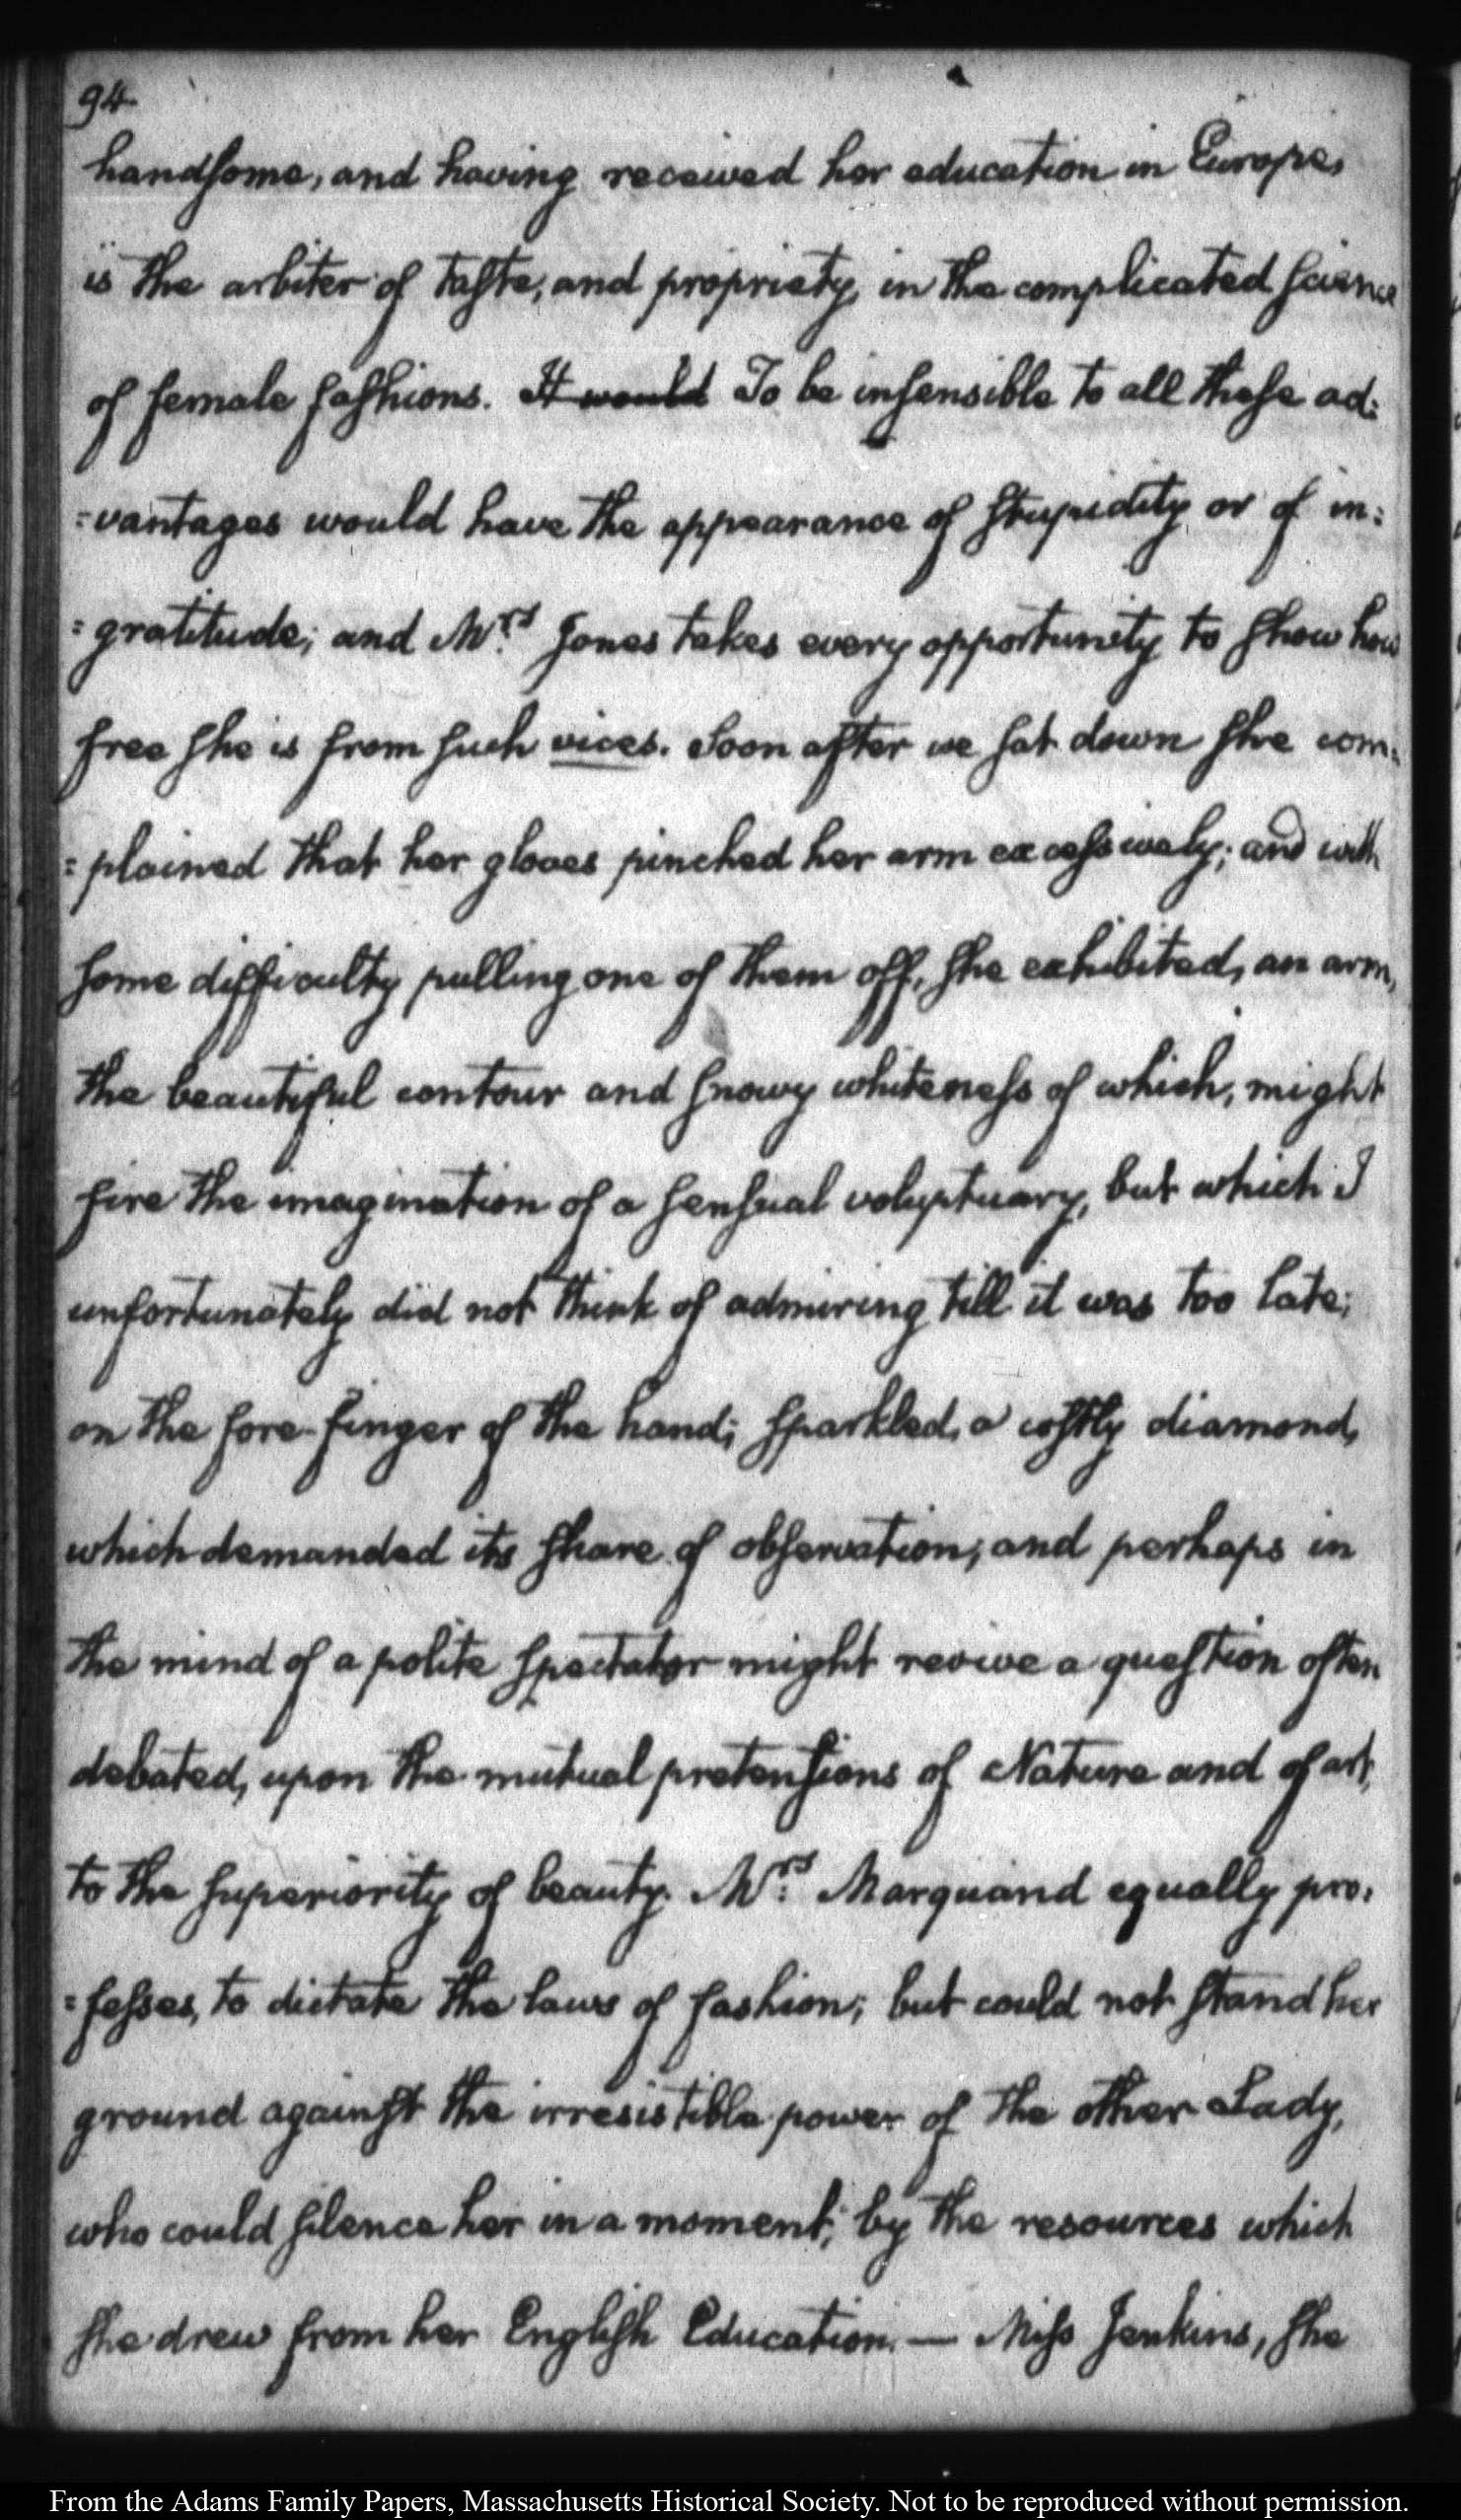 94
handsome, and having received her education in Europe,
is the arbiter of taste, and propriety, in the complicated science
of female fashions. It would To be insensible to all these ad:
=vantages would have the appearance of stupidity or of in:
=gratitude; and Mrs. Jones takes every opportunity to show how
free she is from such vices. Soon after we sat down she com:
=plained that her gloves pinched her arm excessively; and with
some difficulty pulling one of them off, she exhibited, an arm,
the beautiful contour and snowy whiteness of which, might
fire the imagination of a sensual voluptuary, but which I
unfortunately did not think of admiring till it was too late;
on the fore-finger of the hand; sparkled, a costly diamond,
which demanded its share of observation; and perhaps in
the mind of a polite spectator might revive a question often
debated, upon the mutual pretensions of Nature and of art,
to the superiority of beauty. Mrs. Marquand equally pro:
=fesses, to dictate the laws of fashion; but could not stand her
ground against the irresistible power of the other Lady,
who could silence her in a moment; by the resources which
she drew from her English Education. — Miss Jenkins, she
From the Adams Family Papers, Massachusetts Historical Society. Not to be reproduced without permission.